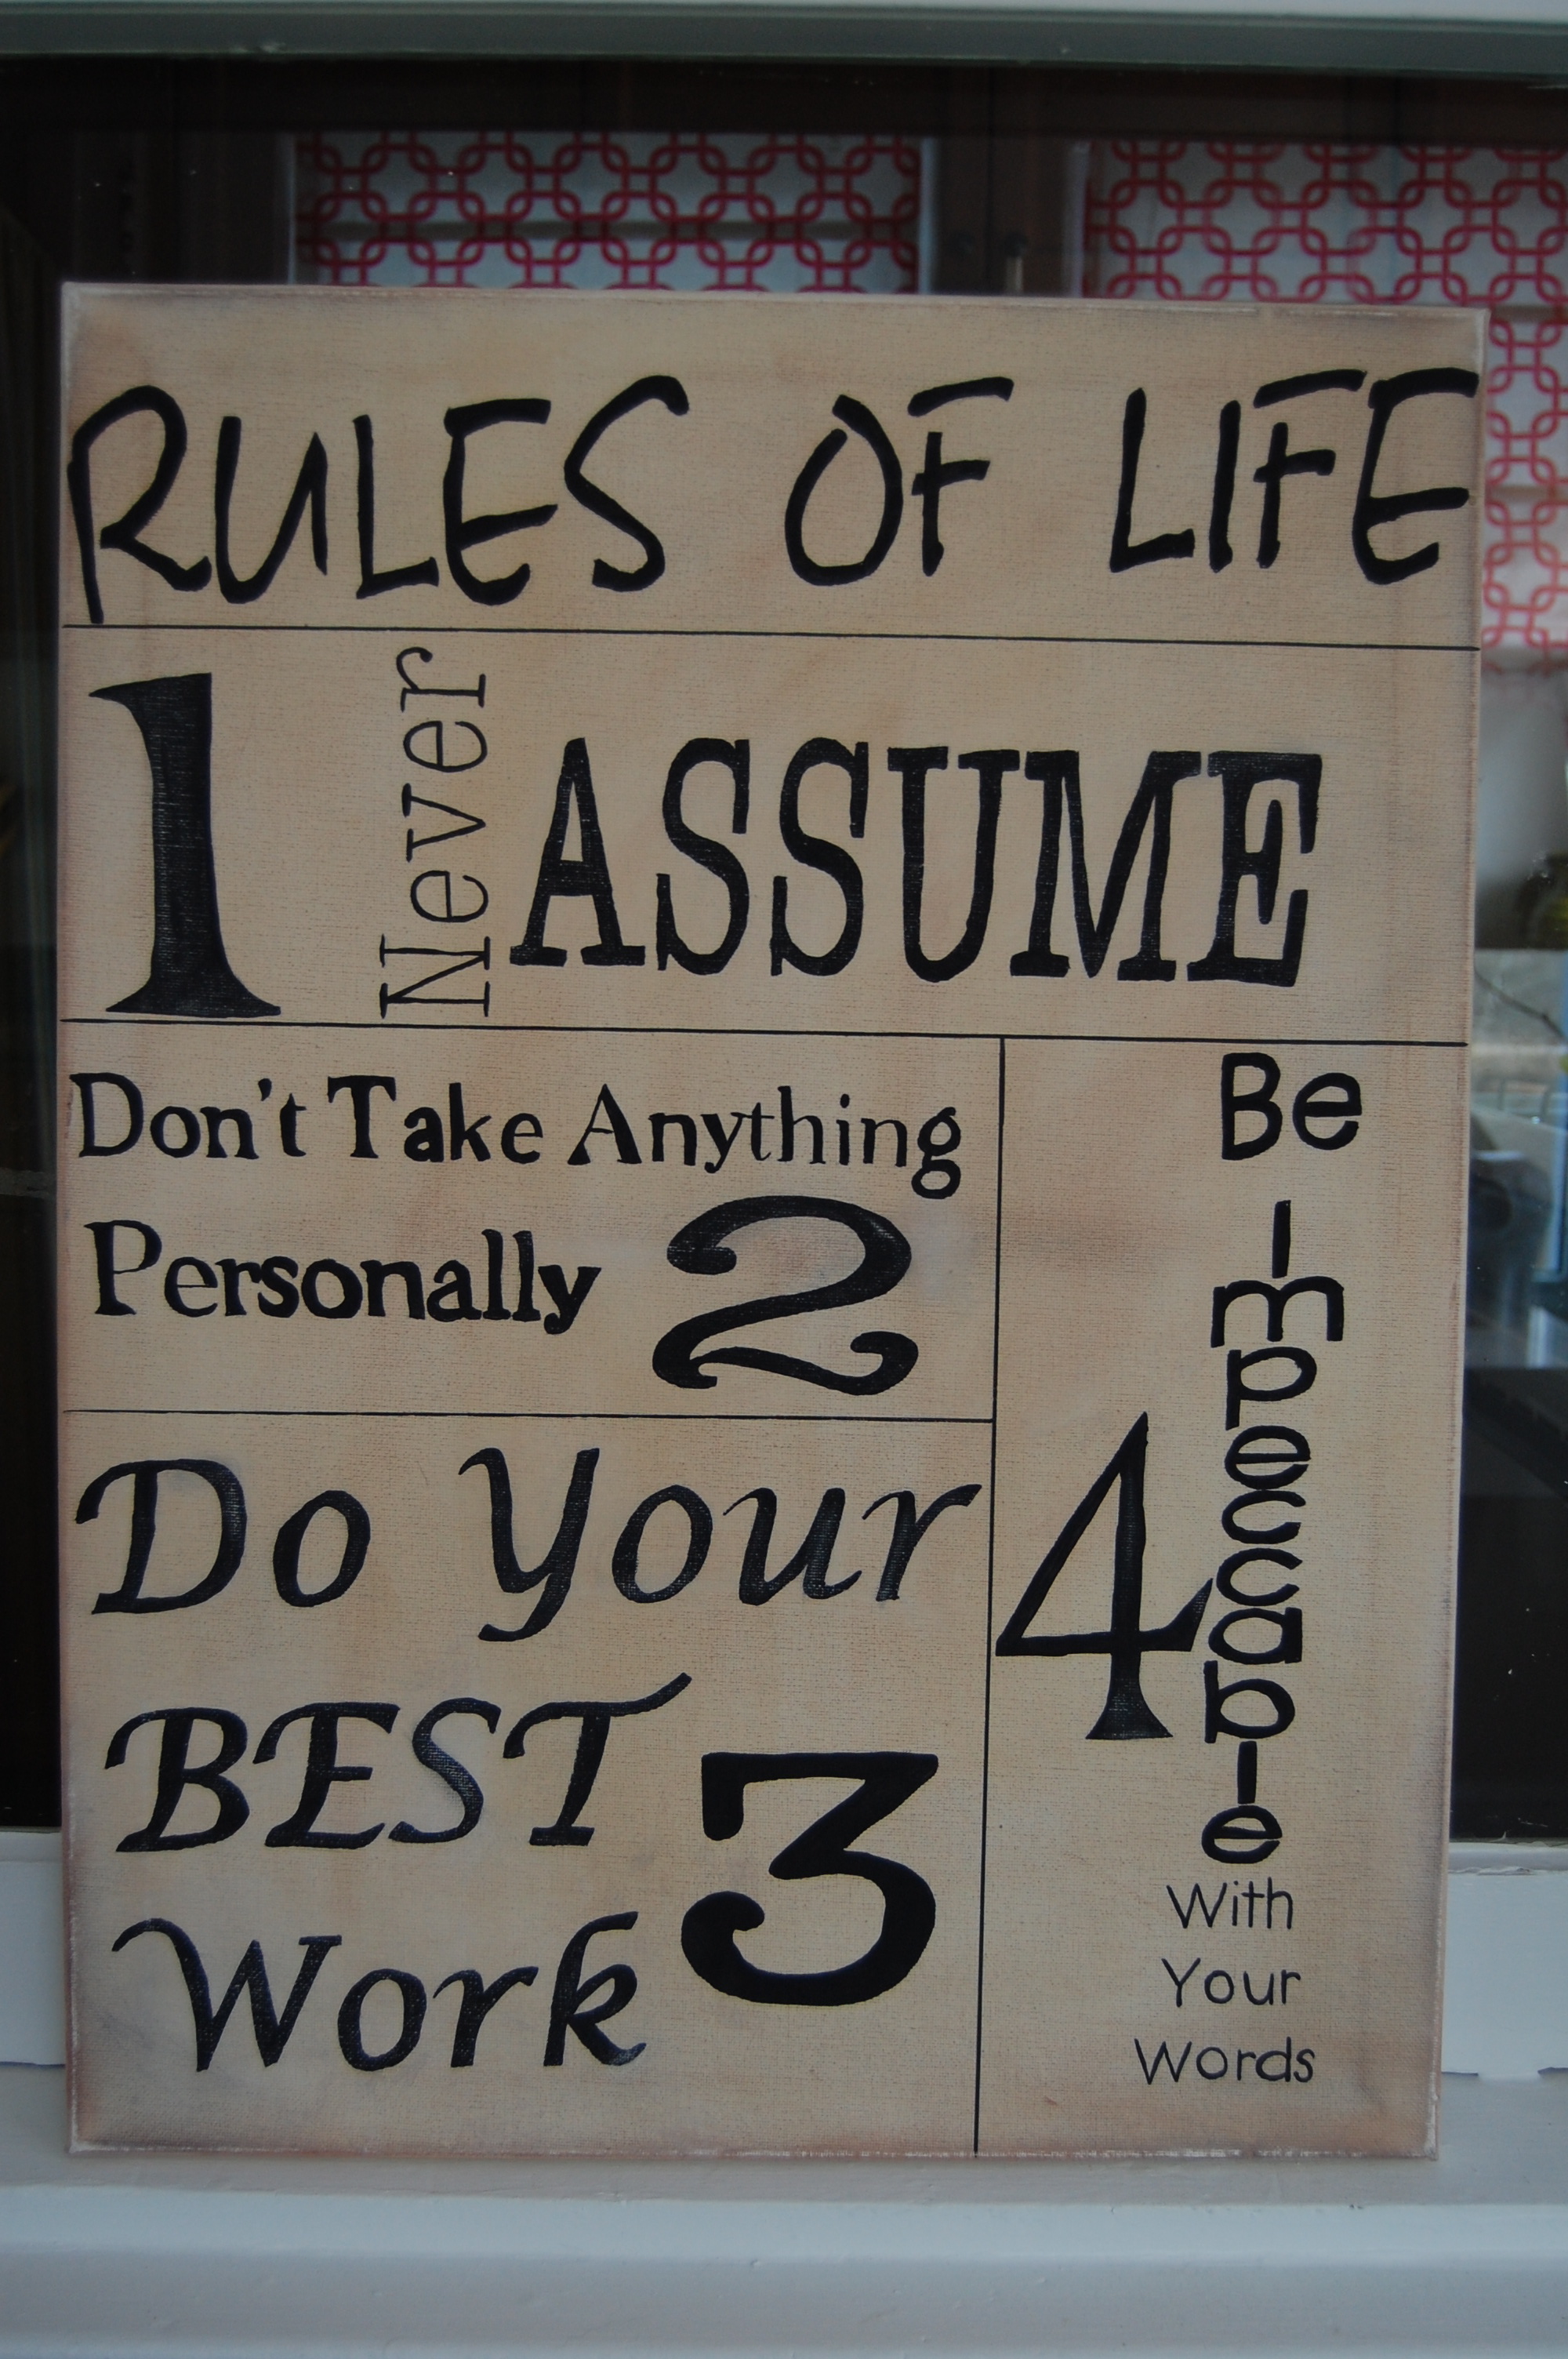 RULES OF LIFE
1 Never ASSUME
Don't Take Anything
Personally 2
Do Your
BEST
Work 3
4
Be
Impeccable
With
Your
Words